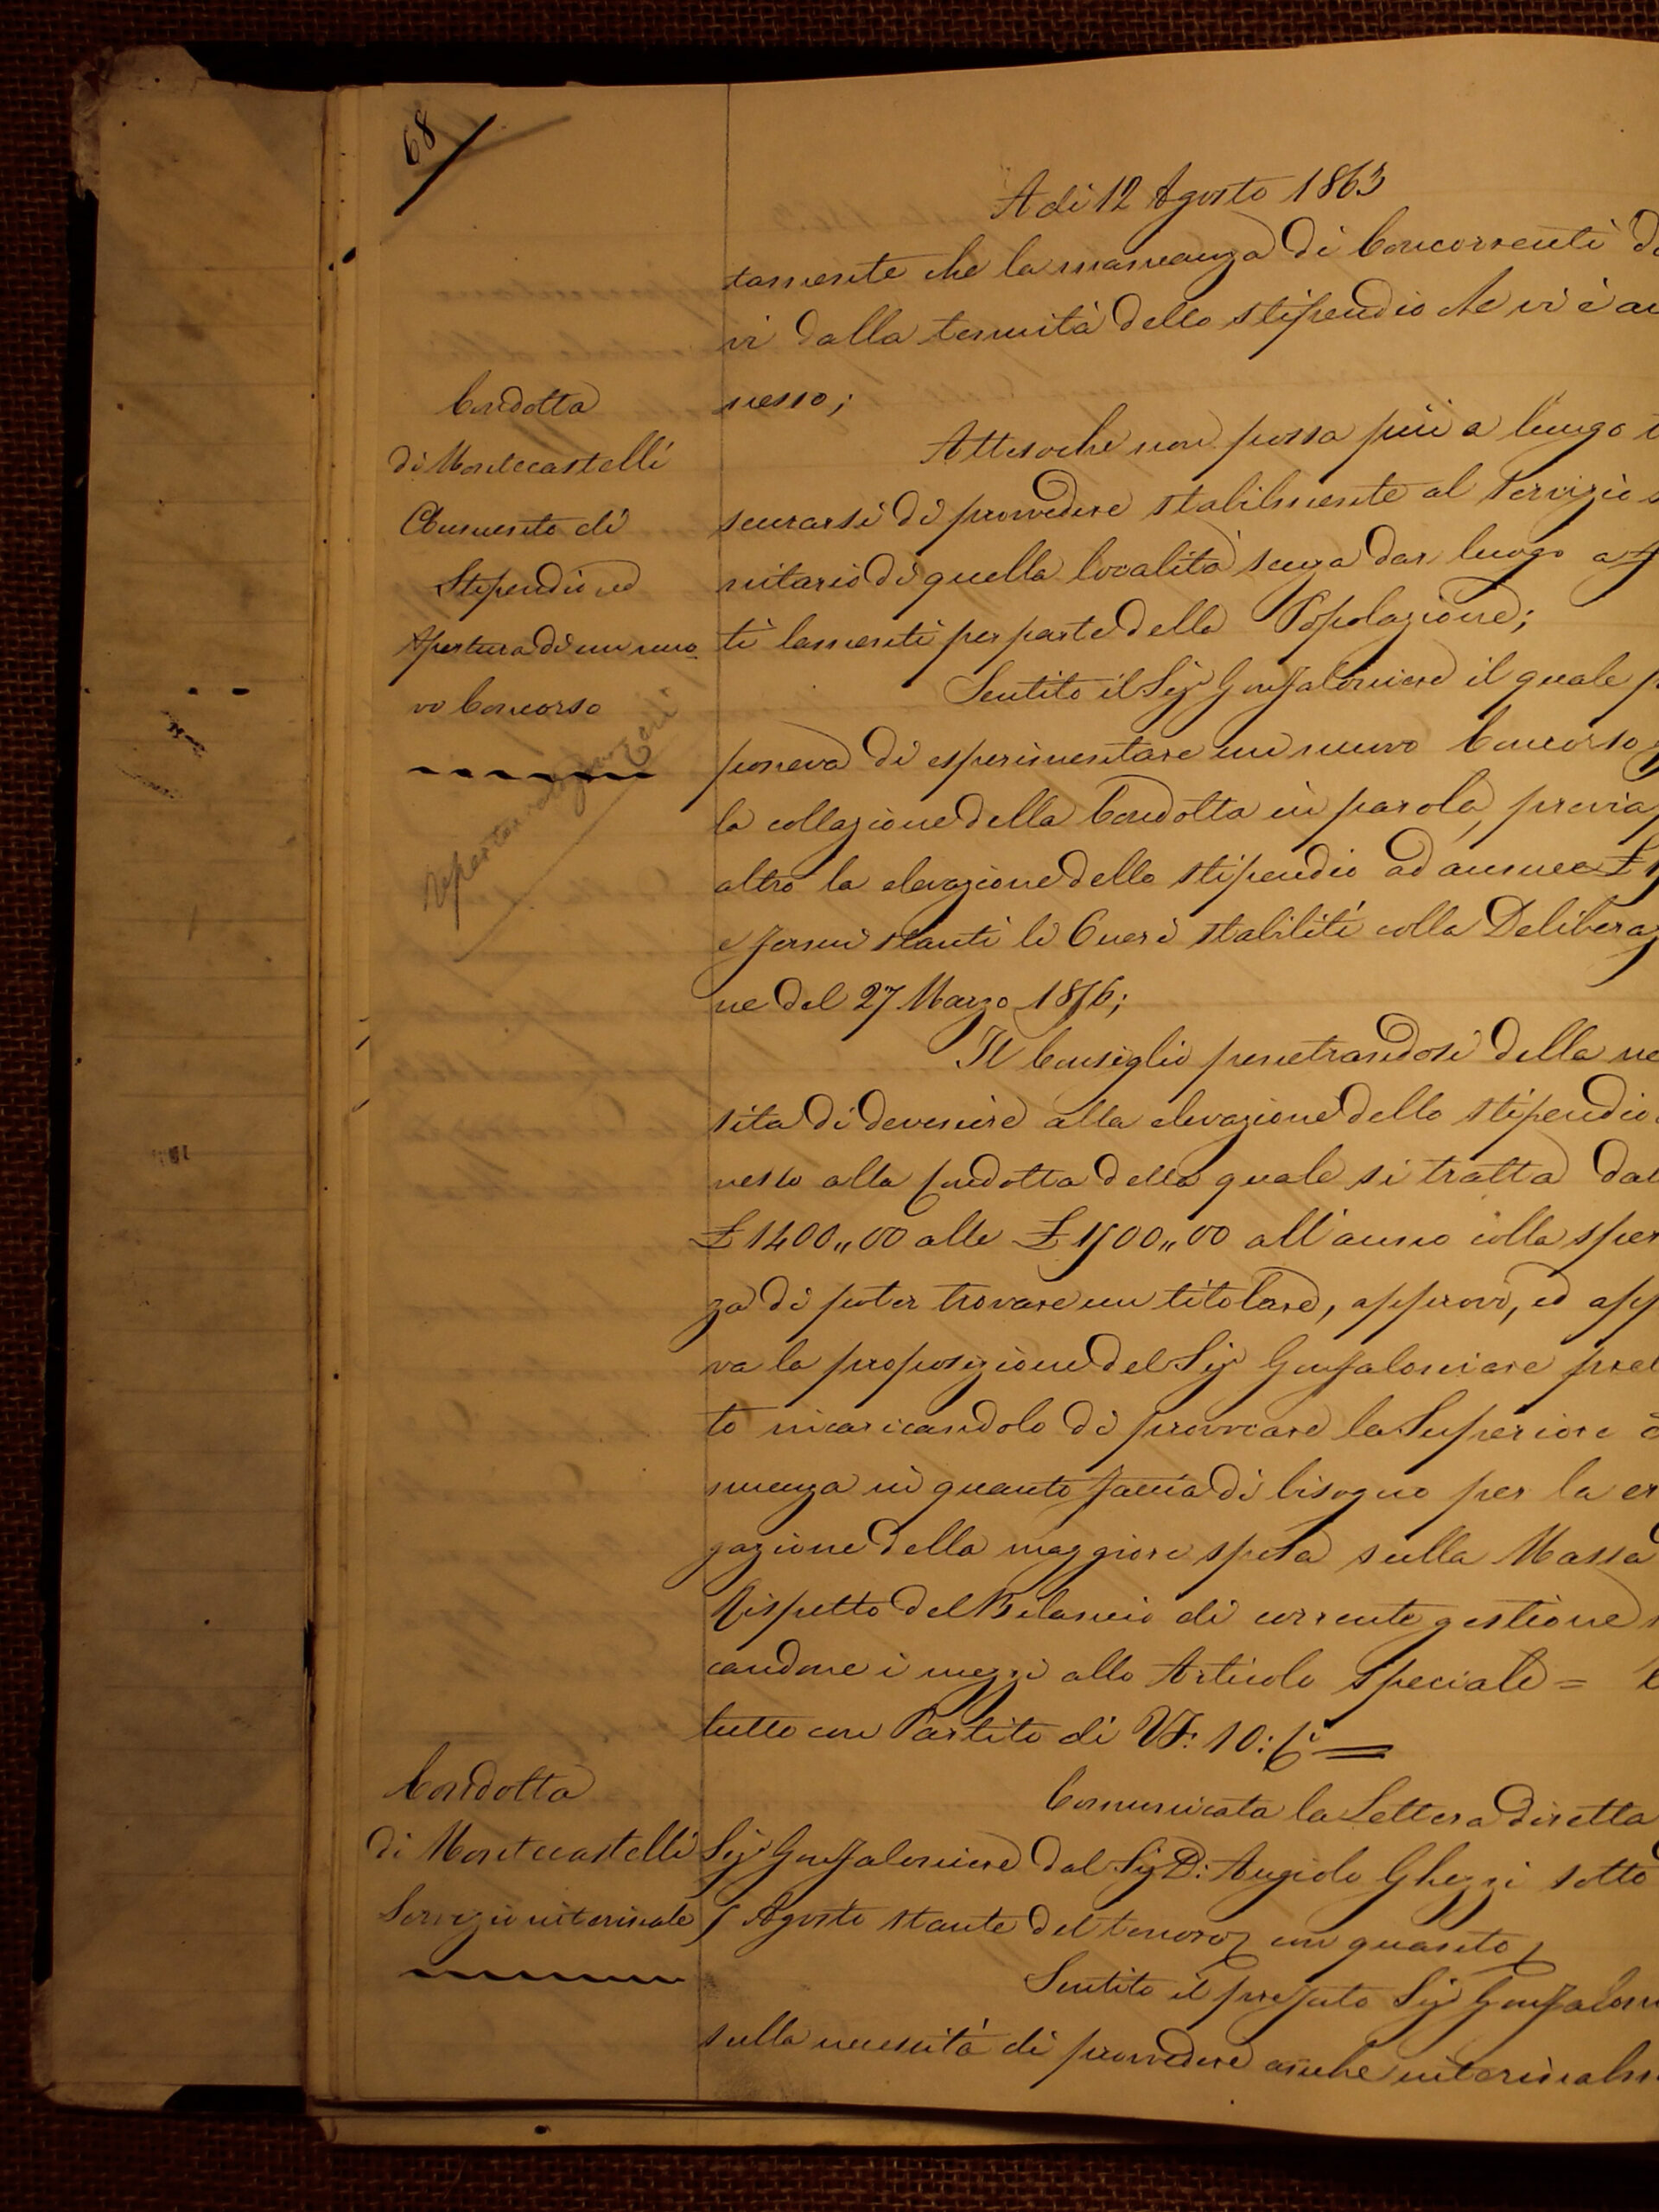 68
A dì 12 Agosto 1863
tamente che la mancanza di Concorrenti de
vi dalla tenuità dello stipendio che vi è an
nesso;
Condotta
di Montecastelli
Aumento di
Stipendio ed
Apertura di un nuo
vo Concorso
Attesochè non possa più a lungo
scurarsi di provvedere stabilmente al Servizio s
nitario di quella località senza dar luogo a f
ti lamenti per parte della Popolazione;
Sentito il Sigr Gonfaloniere il quale p
poneva di esperimentare un nuovo Concorso
la collazione della Condotta in parola, previa
altro la elevazione dello stipendio ad annue £ 15
e fermi stanti li Oneri stabiliti colla Deliberaz
ne del 27 Marzo 1856;
Il Consiglio penetrandosi della ne
sita di devenire alla elevazione dello stipendio
nesso alla Condotta della quale si tratta dal
£ 1400,,00 alle £ 1500,,00 all'anno colla sper
za di poter trovare un titolare, approvò, ed app
va la proposizione del Sigr Gonfaloniere prel
to incaricandolo di provocare la Superiore
nuenza in quanto faccia di bisogno per la er
gazione della maggiore spesa sulla Massa
Rispetto del Bilancio di corrente gestione
candone i mezzi allo Articolo speciale =
tutto con Partito di VF: 10: C
Condotta
di Montecastelli
Servizio interinale
Comunicata la Lettera diretta
Sigr Gonfaloniere dal Sig D: Angiolo Ghezzi sotto
5 Agosto stante del tenore con quanto
Sentito il prefato Sigr Gonfaloni
sulla necessità di provvedere anche interinalm